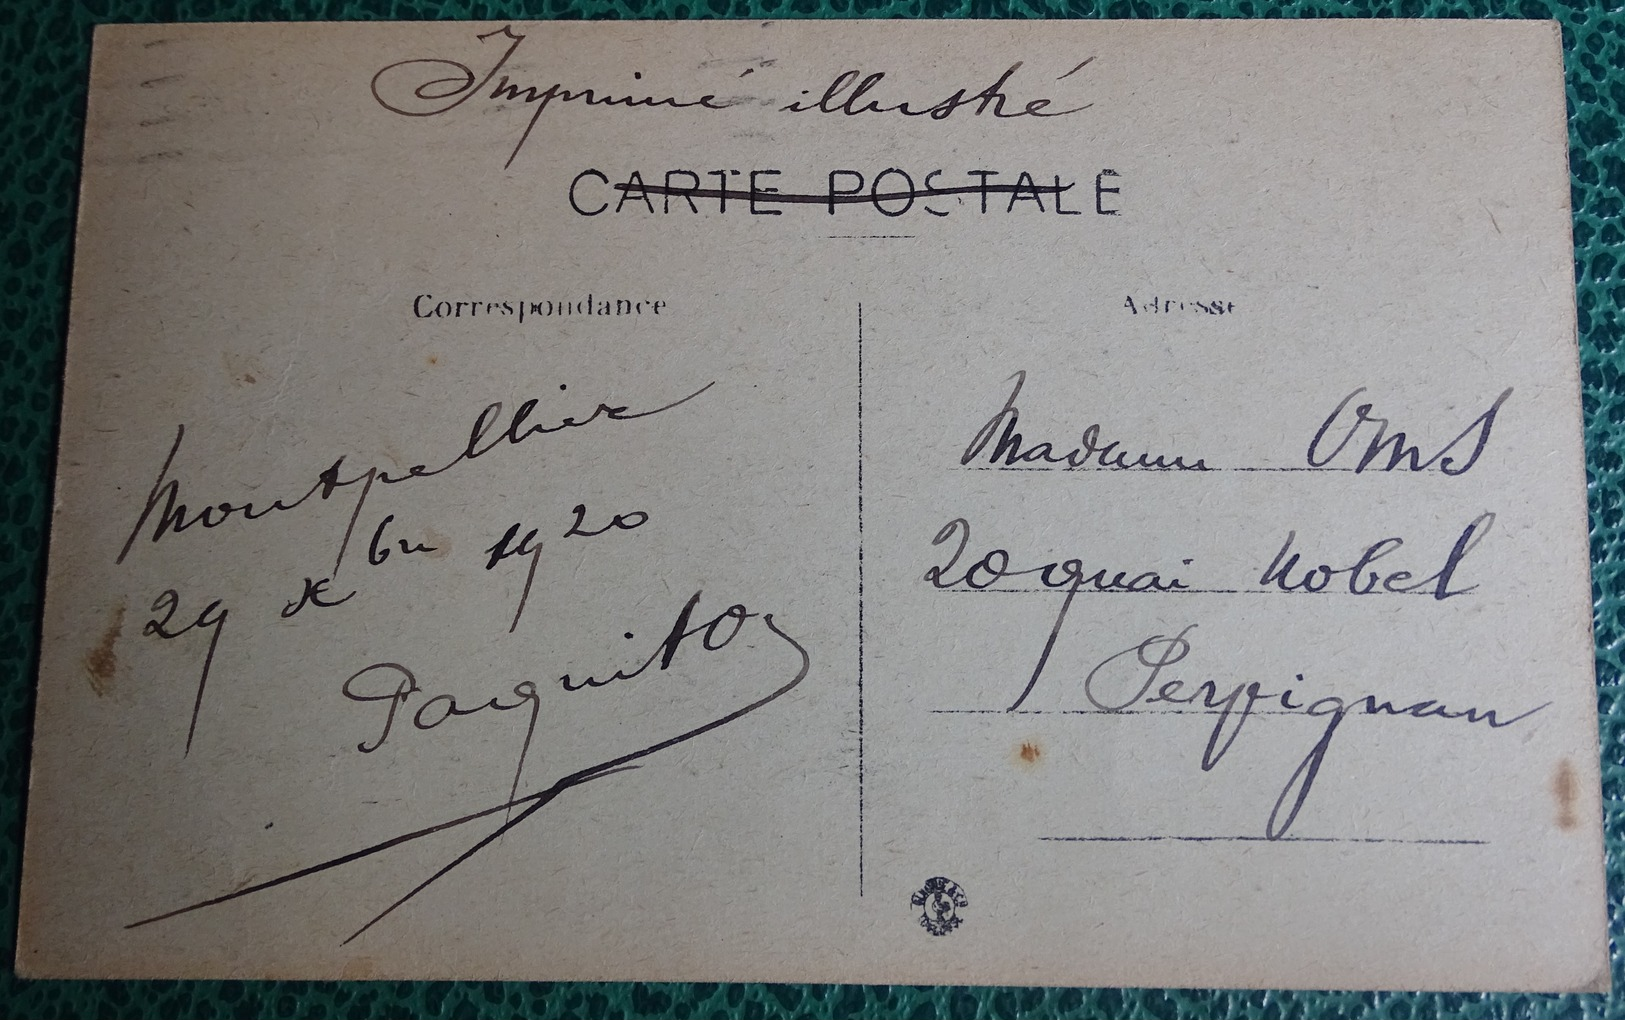 Imprimé illustré
CARTE POSTALE
Correspondance
Montpellier
29 Xbre 1920
Paquito
Adresse
Madame Oms
20 quai Nobel
Perpignan